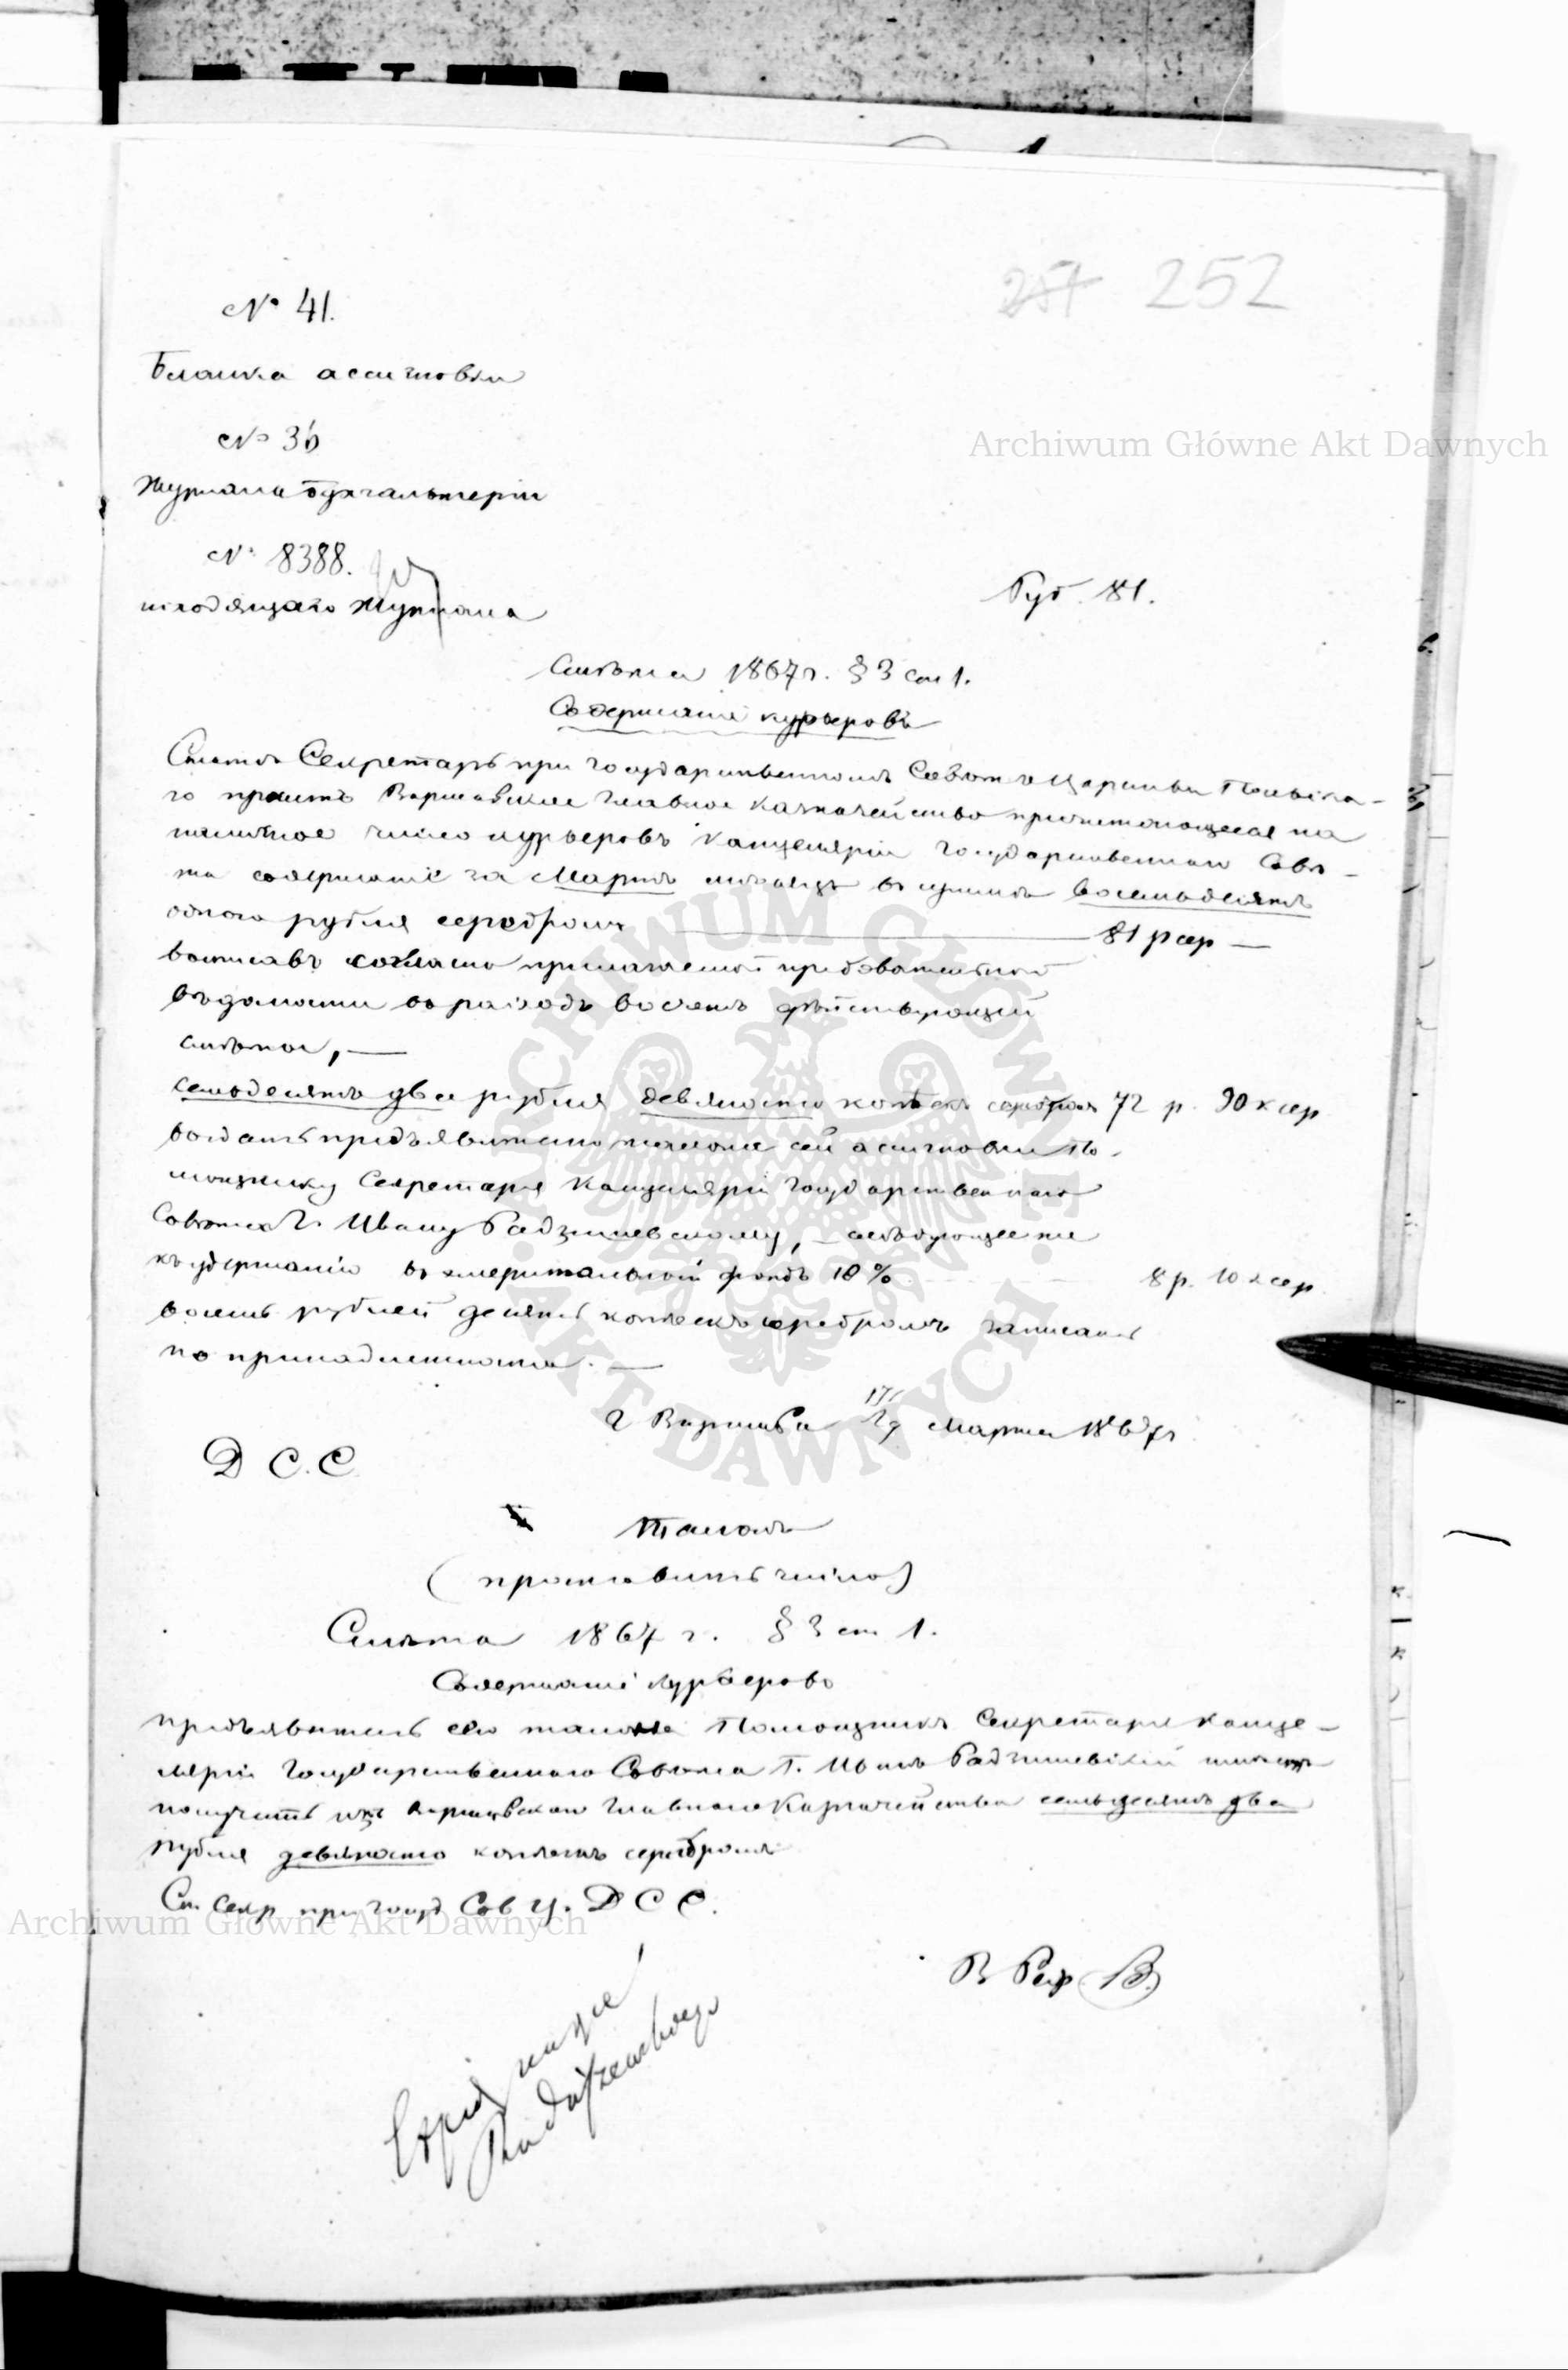 252
№ 41.
Бланка ассигновки
№ 36
Журнала бухгальтеріи
№ 8388.
исходящаго журнала
Руб. 81.
Archiwum Główne Akt Dawnych
Смѣта 1867 г. § 3 ст 1.
Содержаніе курьеровъ
Статсъ Секретарь при Государственномъ Совѣтѣ Царства Польска-
го проситъ Варшавское Главное Казначейство причитающееся на
наличное число курьеровъ Канцеляріи Государственнаго Совѣ-
та содержаніе за Мартъ мѣсяцъ въ суммѣ восемьдесятъ
одного рубля серебромъ 81 р сер —
выписавъ согласно прилагаемой требовательной
вѣдомости въ расходъ въ счетъ дѣйствующей
смѣты, —
семьдесятъ два рубля девяносто копѣекъ серебромъ 72 р. 90 к сер
выдать предъявителю талона сей ассигновки По-
мощнику Секретаря Канцеляріи Государственнаго
Совѣта Г. Ивану Радзишевскому, — слѣдующіе же
къ удержанію въ эмеритальный фондъ 10 % 8 р. 10 к сер.
восемь рублей десять копѣекъ серебромъ записать
по принадлежности. —
г Варшава 17/29 Марта 1867 г
Д С. С.
Талонъ
(проставить число)
Смѣта 1867 г. § 3 ст 1.
Содержаніе курьеровъ
предъявитель сего талона Помощникъ Секретаря Канце-
ляріи Государственнаго Совѣта Г. Иванъ Радзишевскій имѣетъ
получить изъ Варшавскаго Главнаго Казначейства семьдесятъ два
рубля девяносто копѣекъ серебромъ
Ст Секр при Госуд Сов Ц. Д С С.
Archiwum Główne Akt Dawnych
В Реф В.
Radziszewskiego
ARCHIWUM GŁÓWNE · AKT DAWNYCH ·